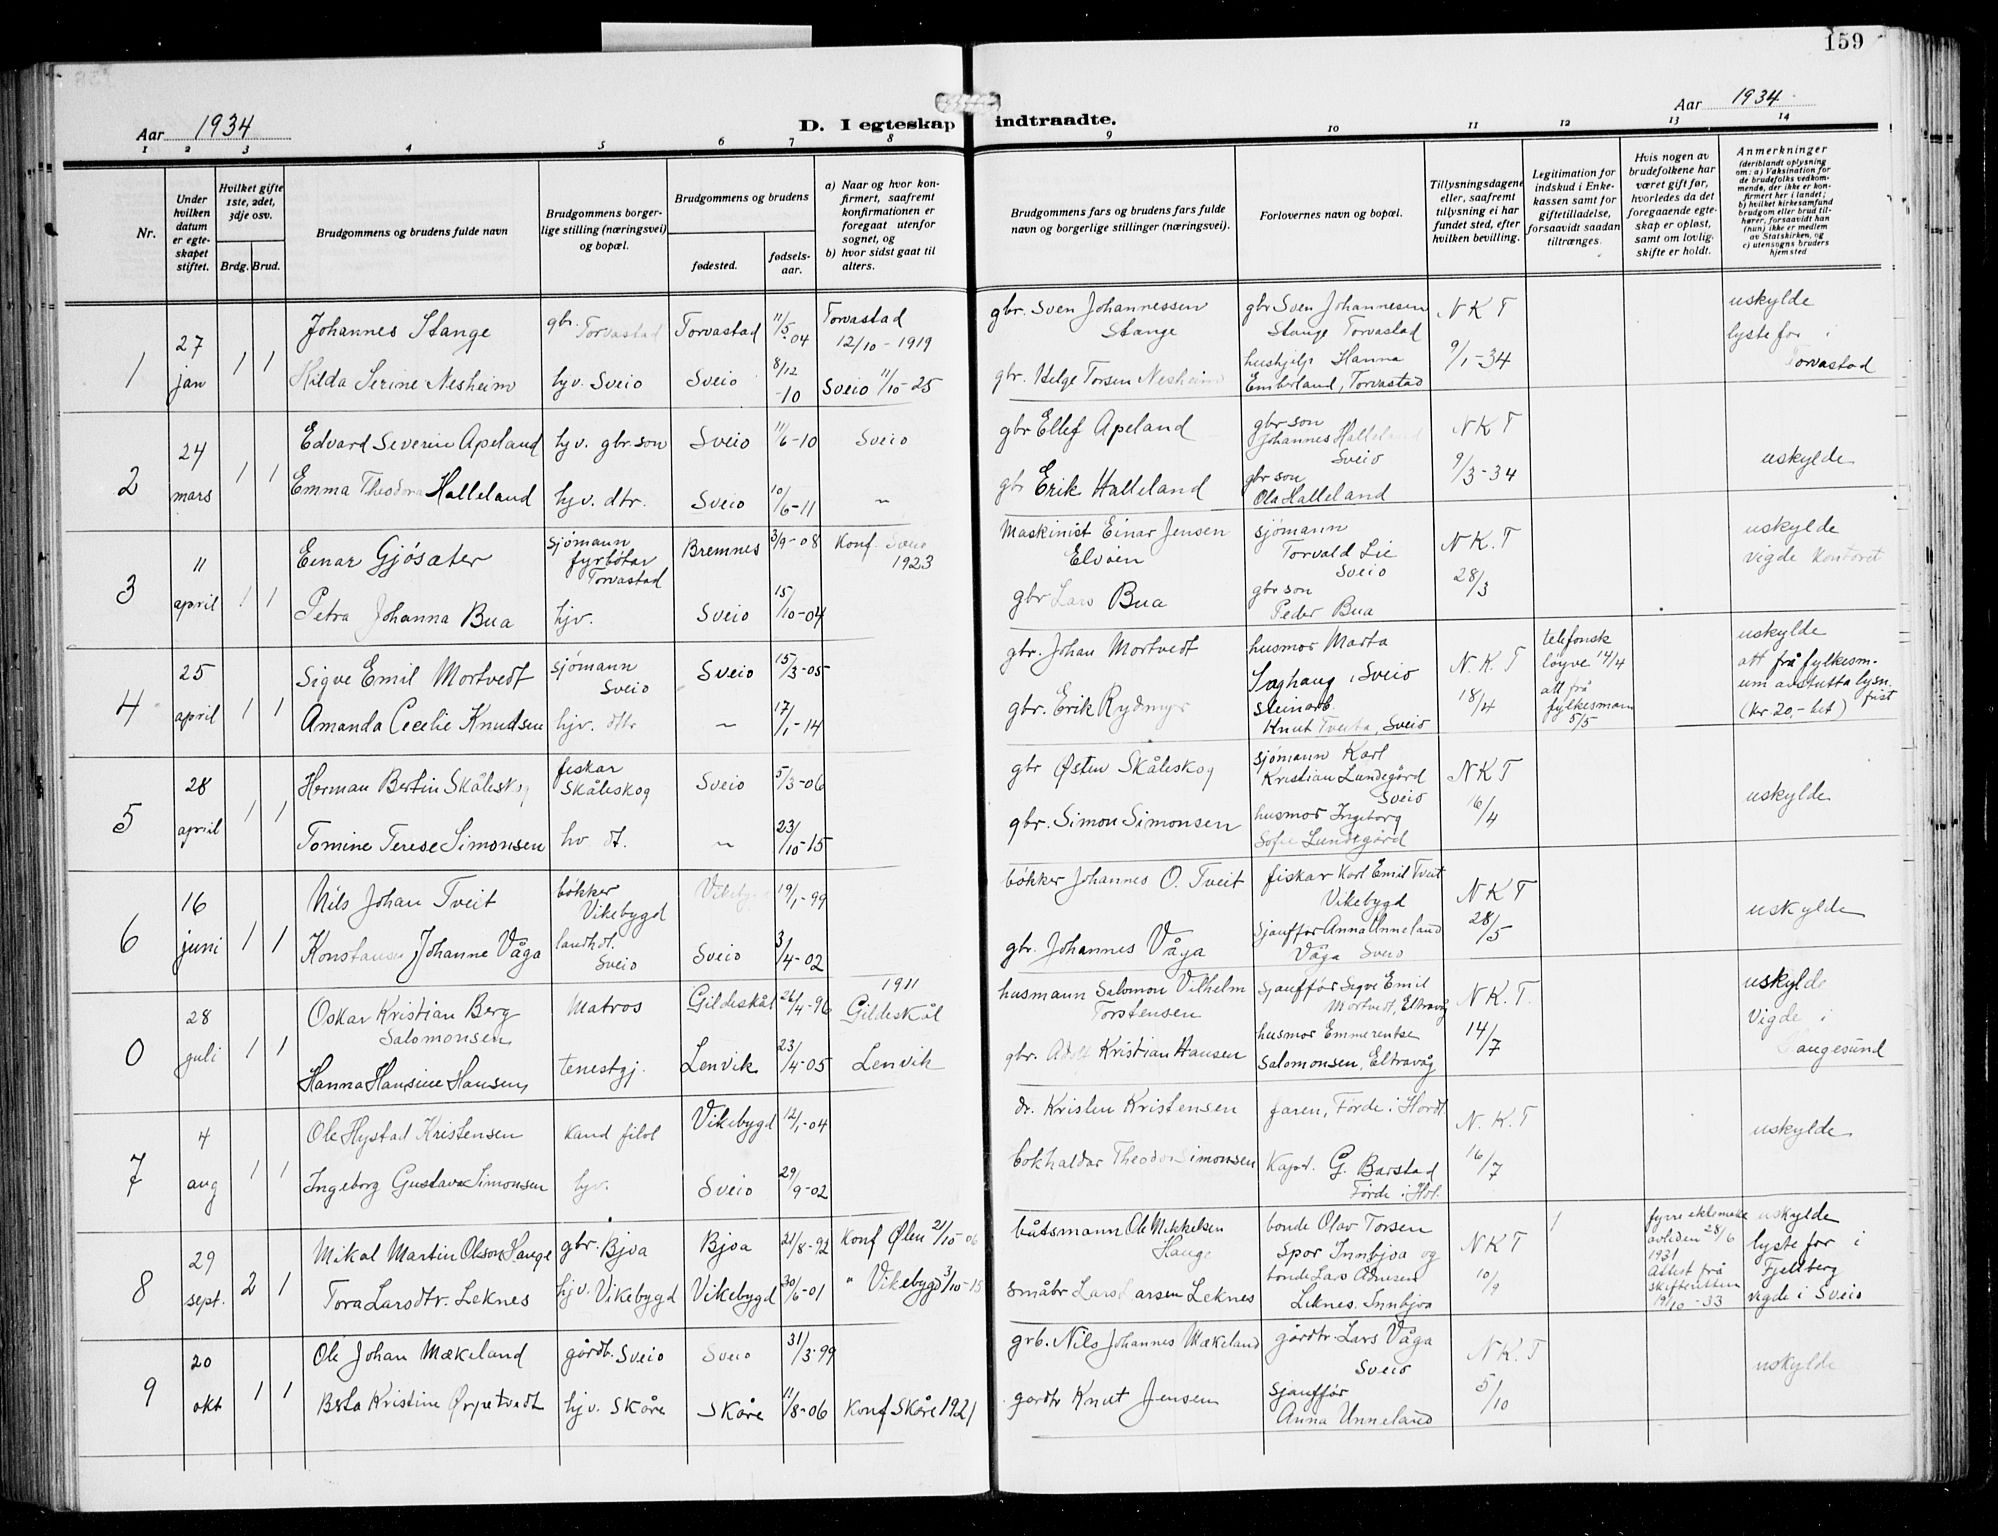 159
Aar 1934
D. I egteskap indtraadte.
Aar 1934
1 2 3 4 5 6 7 8 9 10 11 12 13 14
Nr.
Under hvilken datum er egteskapet stiftet.
Hvilket gifte 1ste, 2det, 3dje osv.
Brdg. Brud.
Brudgommens og brudens fulde navn
Brudgommens borgerlige stilling (næringsvei) og bopæl.
Brudgommens og brudens
fødested.
fødselsaar.
a) Naar og hvor konfirmert, saafremt konfirmationen er foregaat utenfor sognet, og
b) hvor sidst gaat til alters.
Brudgommens fars og brudens fars fulde navn og borgerlige stillinger (næringsvei).
Forlovernes navn og bopæl.
Tillysningsdagene eller, saafremt tillysning ei har fundet sted, efter hvilken bevilling.
Legitimation for indskud i Enkekassen samt for giftetilladelse, forsaavidt saadan tiltrænges.
Hvis nogen av brudefolkene har været gift før, hvorledes da det foregaaende egteskap er opløst, samt om lovlig skifte er holdt.
Anmerkninger (deriblandt oplysning om: a) Vaksination for de brudefolks vedkommende, der ikke er konfirmert her i landet; b) hvilket kirkesamfund brudgom eller brud tilhører, forsaavidt han (hun) ikke er medlem av Statskirken, og c) utensogns bruders hjemsted
1
27 jan
1 1
Johannes Stange
gbr. Torvastad
Torvastad
11/5-04
Torvastad 12/10-1919
gbr. Sven Johannessen Stange
gbr Sven Johannesen Stange Torvastad
N K T
uskylde lyste for i Torvastad
Hilda Serine Nesheim
hjv. Sveio
Sveio
8/12-10
Sveio 11/10-25
gbr. Helge Torsen Nesheim
hushjelp Hanna Emberland, Torvastad
9/1-34
2
24 mars
1 1
Edvard Severin Apeland
hjv. gbr son
Sveio
11/6-10
Sveio
gbr Ellef Apeland
gbr son Johannes Halleland Sveio
N K T
uskylde
Emma Theodora Halleland
hjv. dtr.
Sveio
10/6-11
~
gbr Erik Halleland
gbr son Ola Halleland
9/3-34
3
11 april
1 1
Einar Gjösæter
sjømann fyrbøtar Torvastad
Bremnes
3/9-08
Konf. Sveio 1923
Maskinist Einar Jensen Elvöen
sjømann Torvald Lie Sveio
N K. T
uskylde vigde kontoret
Petra Johanna Bua
hjv.
Sveio
15/10-04
gbr Lars Bua
gbr son Peder Bua
28/3
4
25 april
1 1
Sigve Emil Mortvedt
sjømann Sveio
Sveio
15/3-05
gbr. Johan Mortvedt
husmor Marta Saghaug, Sveio
N. K. T
telefonsk løyve 14/4 att frå fylkesmann 5/5
uskylde att frå fylkesm. um avstutta lysn. frist (kr 20,- bet)
Amanda Cecelie Knudsen
hjv. dtr
~
17/1-14
gbr. Erik Rydmyr
steinarb. Knut Tveita, Sveio
18/4
5
28 april
1 1
Herman Bertin Skåleskog
fiskar Skåleskog
Sveio
5/3-06
gbr Østen Skåleskog
sjømann Karl Kristian Lundegård Sveio
N K T
uskylde
Tomine Terese Simonsen
hv. dt.
~
23/10-15
gbr. Simon Simonsen
husmor Ingeborg Sofie Lundegård
16/4
6
16 juni
1 1
Nils Johan Tveit
bøkker Vikebygd
Vikebygd
19/1-99
bøkker Johannes O. Tveit
fiskar Karl Emil Tveit Vikebygd
N K T
uskylde
Konstanse Johanne Våga
Sveio
Sveio
3/4-02
gbr. Johannes Våga
sjauffør Anna Unneland Våga Sveio
28/5
0
28 juli
1 1
Oskar Kristian Berg Salomonsen
Matros
Gildeskål
26/4-96
1911 Gildeskål
husmann Salomon Vilhelm Torstensen
sjauffør Sigve Emil Mortvedt, Eltravåg
N K. T.
uskylde Vigde i Haugesund
Hanna Hansine Hansen
tenestgj.
Lenvik
23/4-05
Lenvik
gbr. Adolf Kristian Hansen
husmor Emmerentse Salomonsen, Eltravåg
14/7
7
4 aug
1 1
Ole Hystad Kristensen
kand filol
Vikebygd
12/1-04
dr. Kristen Kristensen
faren, Førde i Hordl.
N. K. T
uskylde
Ingeborg Gustava Simonsen
hjv.
Sveio
29/9-02
bokhaldar Theodor Simonsen
Kapt. G. Barstad Førde i Hol.
16/7
8
29 sept.
2 1
Mikal Martin Olson Hauge
gbr. Bjoa
Bjoa
21/8-92
Konf Ølen 21/10-06
båtsmann Ole Mikkelsen Hauge
bonde Olav Torsen Spor Innbjoa og
N K T
1
fyrre ektemake avliden 28/6 1931 Attest frå skifteretten 19/10-33
uskylde lyste for i Fjelberg vigde i Sveio
Tora Larsdtr. Leknes
hjv. Vikebygd
Vikebygd
30/6-01
" Vikebygd 3/10-15
småbr Lars Larsen Leknes
bonde Lars Odnesen Leknes. Innbjoa
10/9
9
20 okt
1 1
Ole Johan Mækeland
gårdb. Sveio
Sveio
31/3-99
grb. Nils Johannes Mækeland
gårdbr. Lars Våga Sveio
N K. T
uskylde
Berta Kristine Ørpetvedt
hjv. Skåre
Skåre
11/8-06
Konf Skåre 1921
gardbr Knut Jensen
sjauffør Anna Unneland
5/10